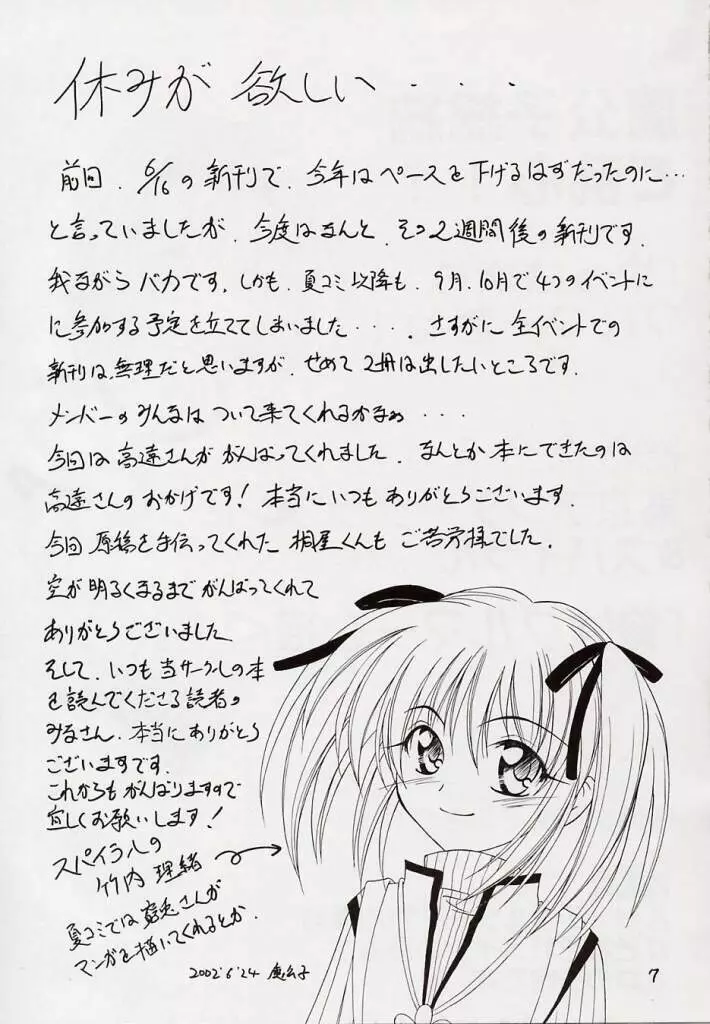 休みが 欲しい・・・
前回、6/16の新刊で、今年はペースを下げるはずだったのに…
と言っていましたが、今度はなんと、その2週間後の新刊です。
我ながらバカです。しかも、夏コミ以降も、9月、10月で4つのイベントに
に参加する予定を立ててしまいました・・・。さすがに全イベントでの
新刊は無理だと思いますが、せめて2冊は出したいところです。
メンバーのみんなはついて来てくれるかなぁ・・・
今回は高遠さんががんばってくれました。なんとか本にできたのは
高遠さんのおかげです!本当にいつもありがとうございます。
今回原稿を手伝ってくれた桐星くんもご苦労様でした。
空が明るくなるまでがんばってくれて
ありがとうございました
そして、いつも当サークルの本
を読んでくださる読者の
みなさん、本当にありがとう
ございますです。
これからもがんばりますので
宜しくお願いします!
スパイラルの
竹内理緒
夏コミでは さんが
マンガを描いてくれるとか。
2002'6'24
7